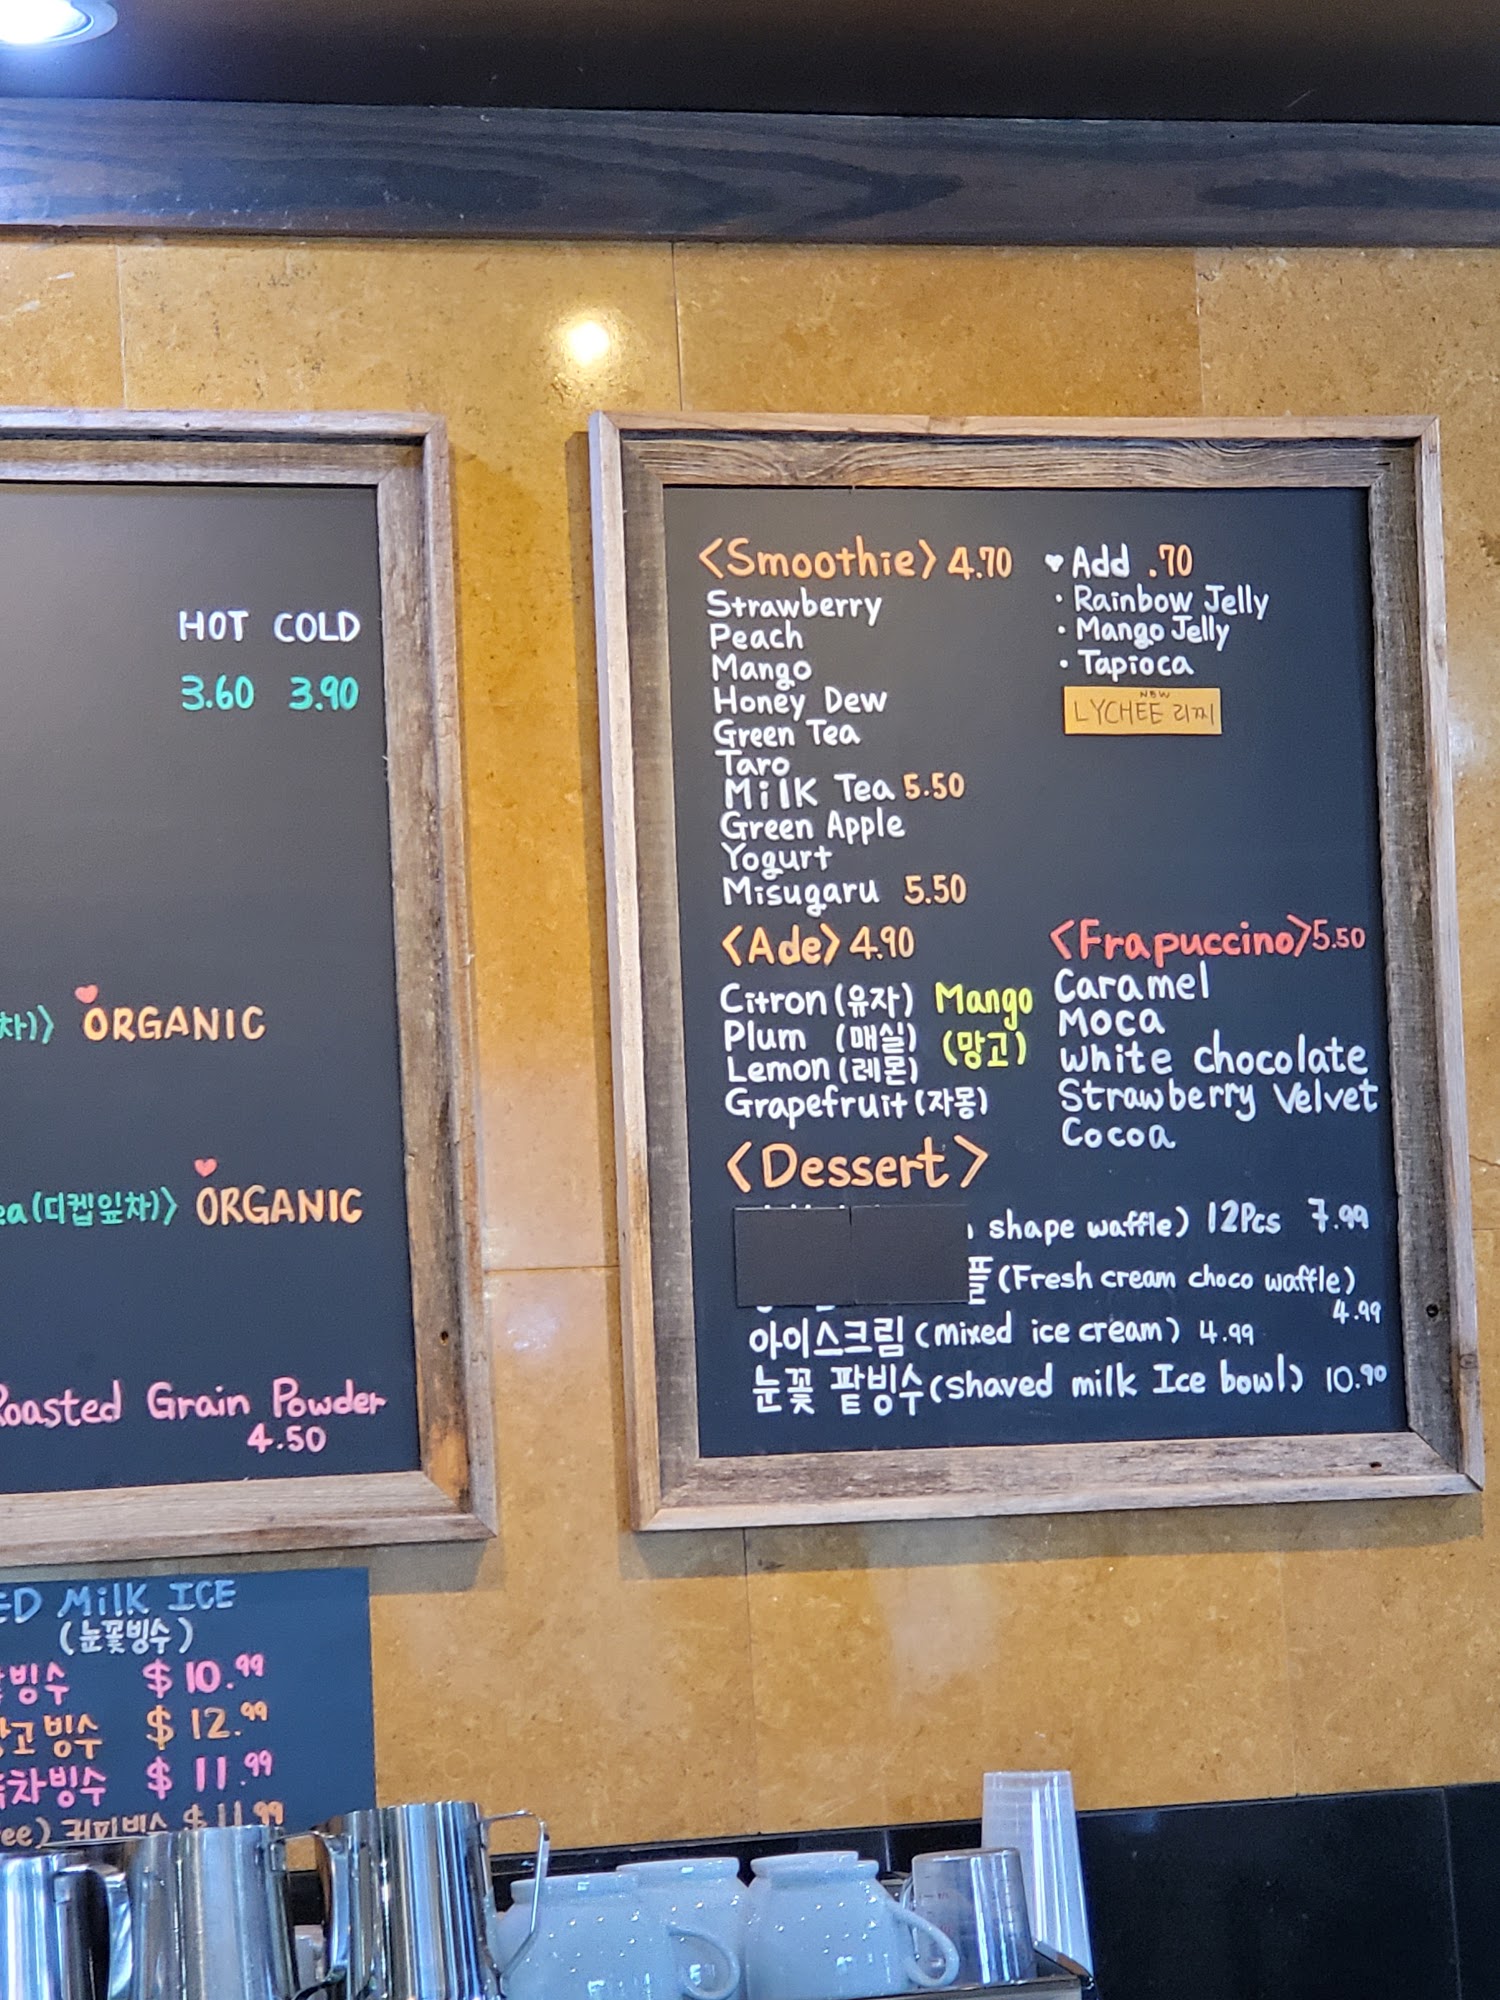 HOT COLD
3.60 3.90
차)〉 ORGANIC
ea (디켑잎차)〉 ORGANIC
Roasted Grain Powder
4.50
ED Milk ICE
(눈꽃빙수)
빙수 $10.99
고빙수 $12.99
차빙수 $11.99
ee) 커피빙수 $11.99
<Smoothie> 4.70
Strawberry
Peach
Mango
Honey Dew
Green Tea
Taro
Milk Tea 5.50
Green Apple
Yogurt
Misugaru 5.50
♥ Add .70
· Rainbow Jelly
· Mango Jelly
· Tapioca
NEW
LYCHEE 리찌
<Ade> 4.90
Citron (유자)
Plum (매실)
Lemon (레몬)
Grapefruit (자몽)
Mango
(망고)
<Frapuccino> 5.50
Caramel
Moca
White chocolate
Strawberry Velvet
Cocoa
<Dessert>
shape waffle) 12Pcs 7.99
플 (Fresh cream choco waffle)
4.99
아이스크림 (mixed ice cream) 4.99
눈꽃 팥빙수 (shaved milk Ice bowl) 10.90